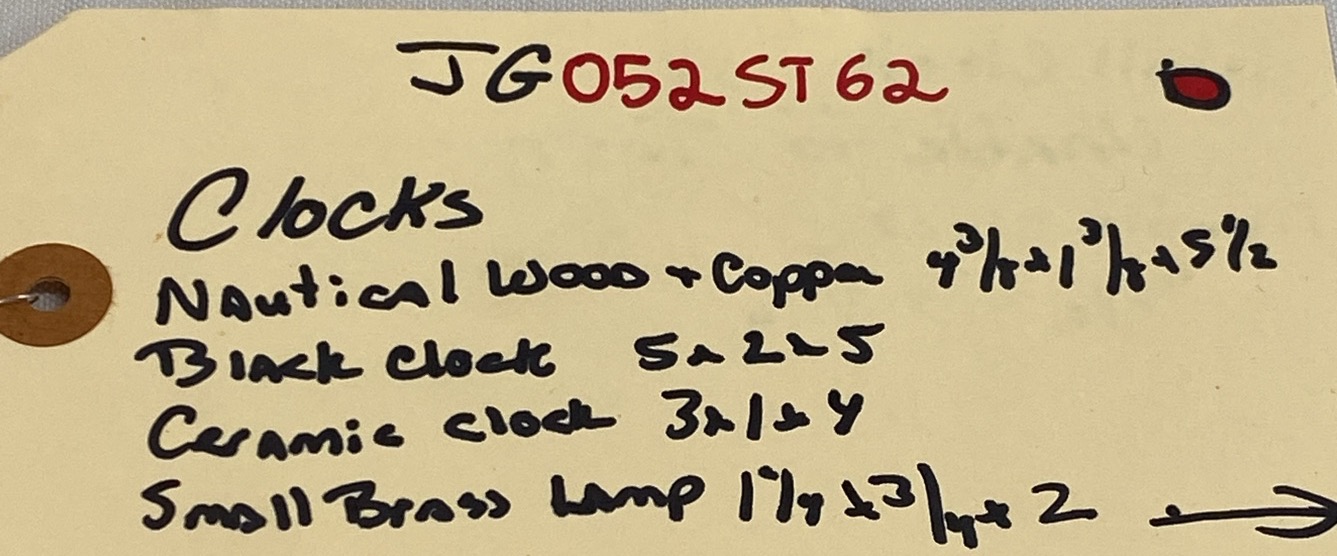 JG052ST62
Clocks
Nautical Wood + Copper 4 3/8 x 1 3/8 x 5 1/2
Black clock 5 x 2 x 5
Ceramic clock 3 x 1 x 4
Small Brass Lamp 1 1/4 x 3/4 x 2 →